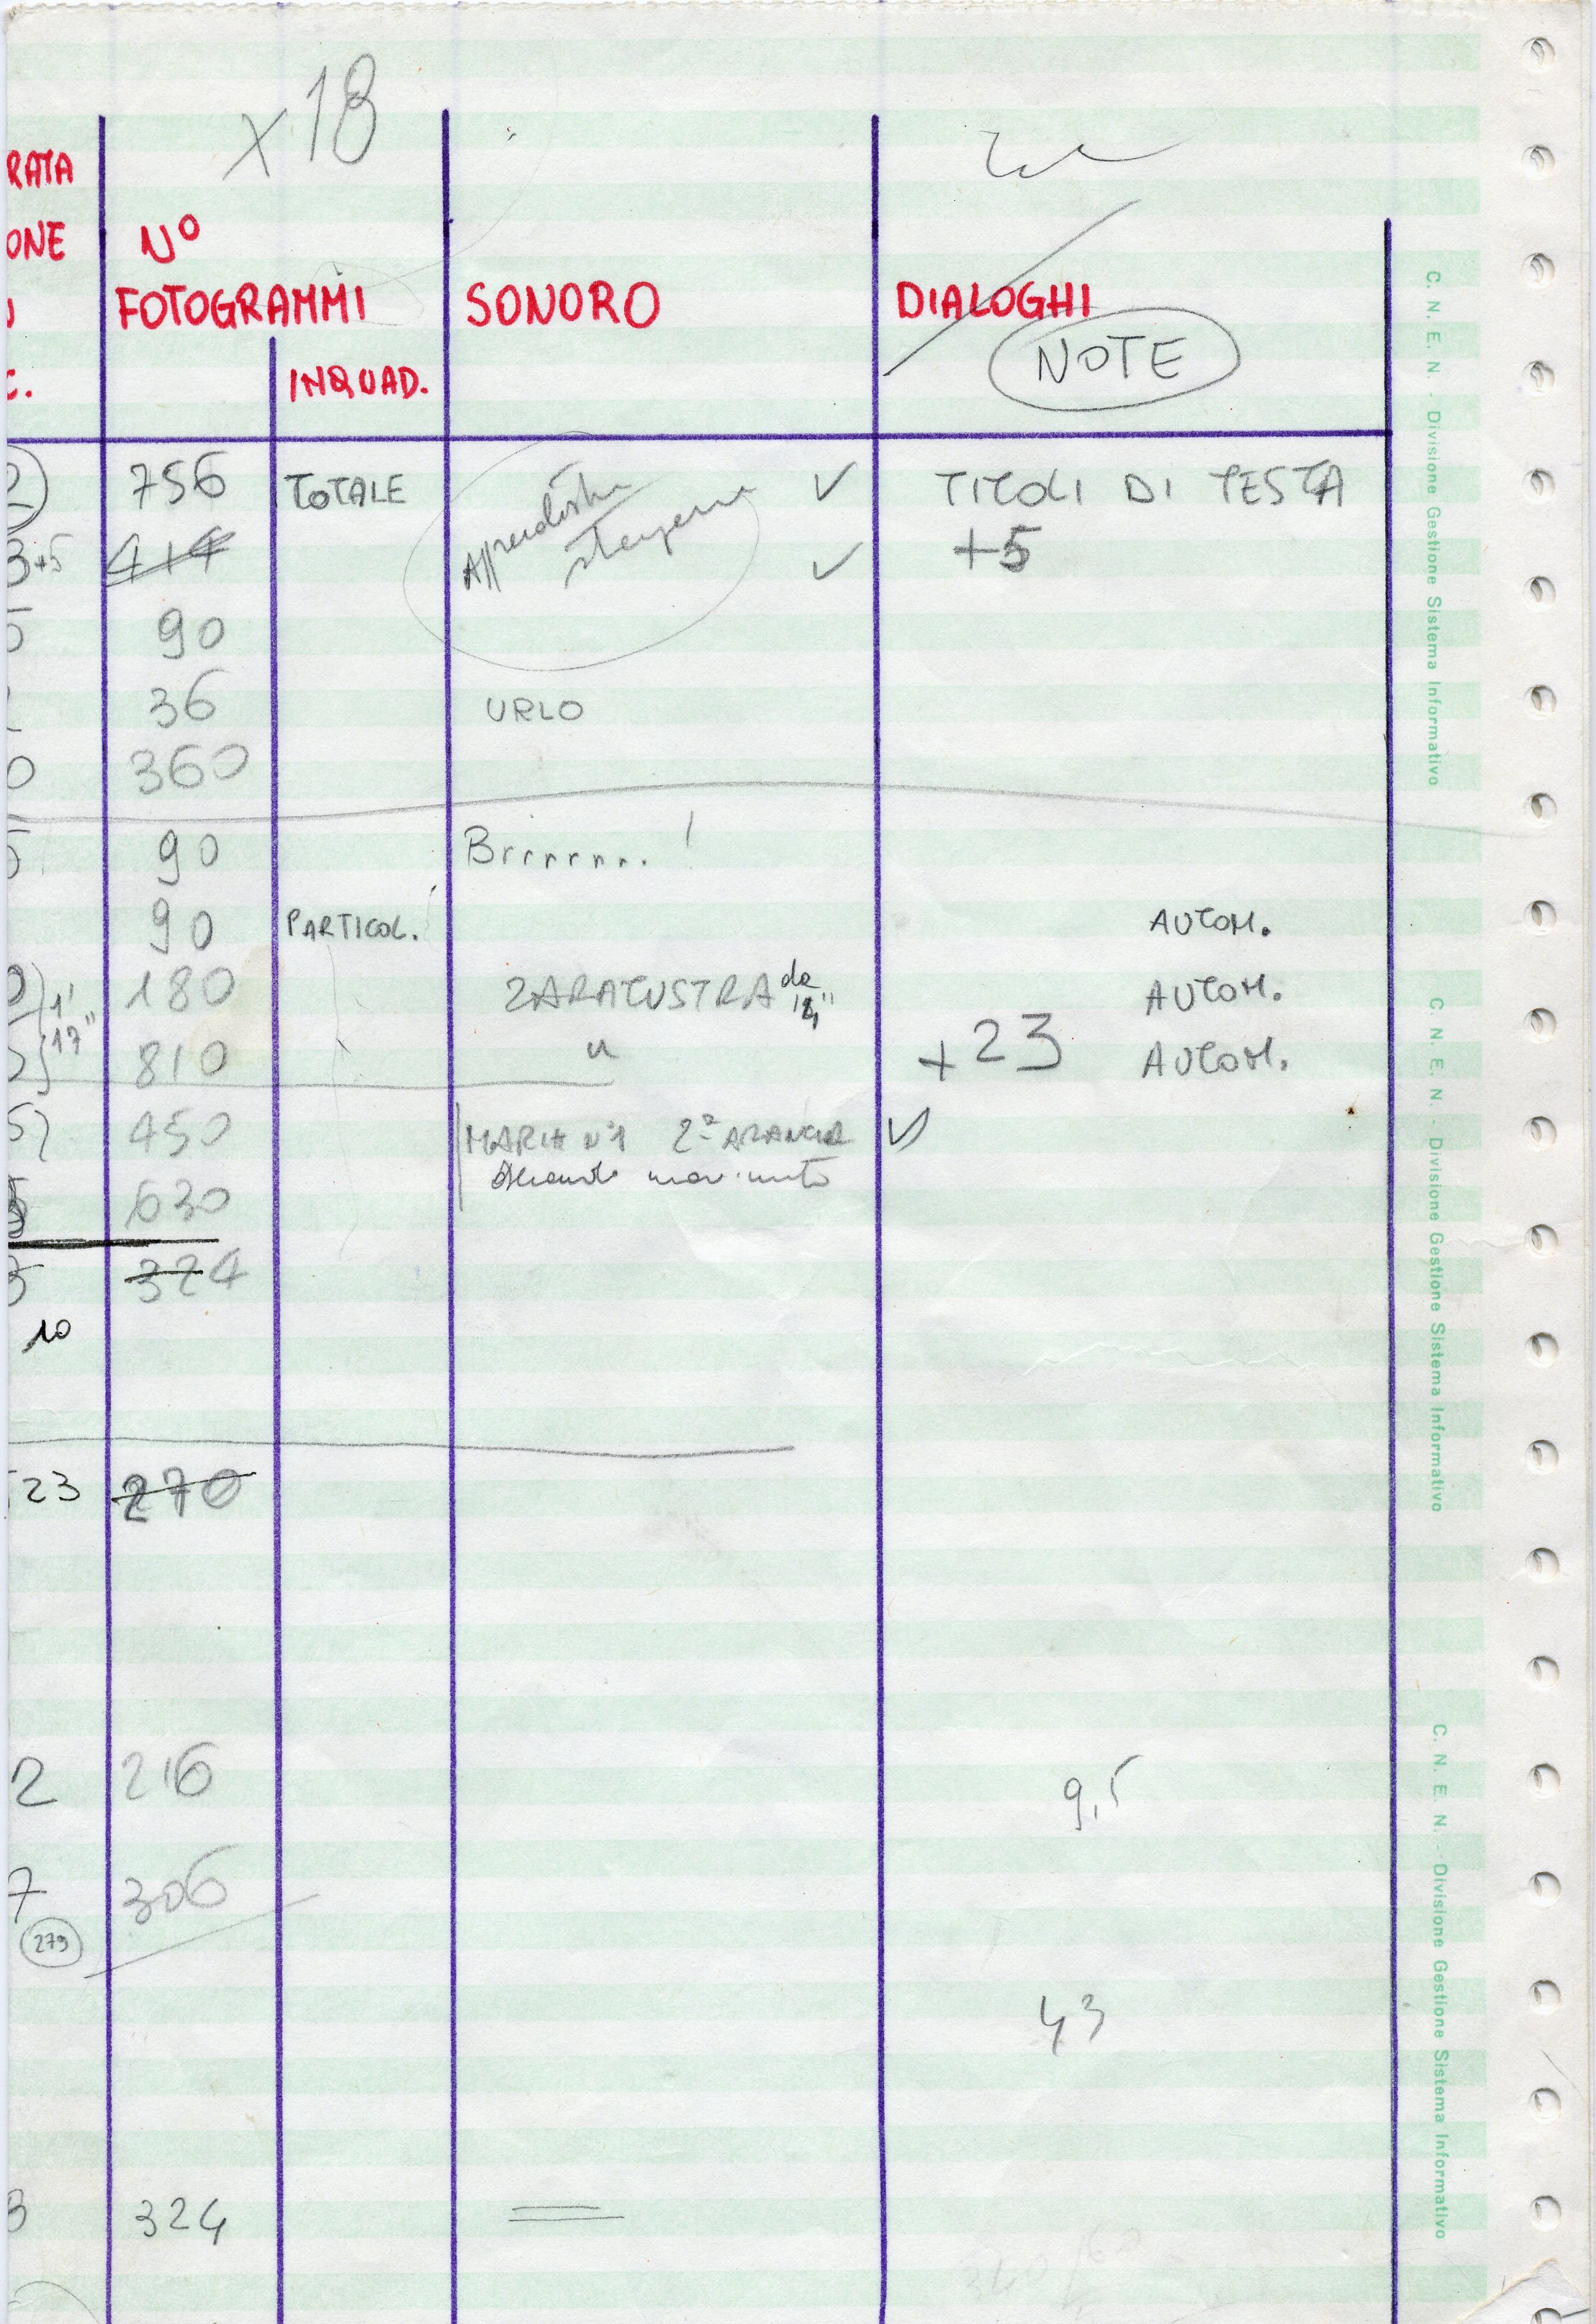 x 18
RATA
ONE
N°
FOTOGRAMMI
SONORO
DIALOGHI
NOTE
INQUAD.
756 TOTALE ✓ TITOLI DI TESTA
Apprendista stregone
3+5 414 ✓ +5
90
36 URLO
0 360
90 Brrrrrr. !
90 PARTICOL. AUTOM.
1' 17" 180 ZARATUSTRA da AUTOM.
810 " +23 AUTOM.
450 MARCIA N°1 2ª ARANCIA ✓
movimento
630
324
10
23 270
2 216 9,5
7 306
279
43
324
340/60
C. N. E. N. - Divisione Gestione Sistema Informativo
C. N. E. N. - Divisione Gestione Sistema Informativo
C. N. E. N. - Divisione Gestione Sistema Informativo